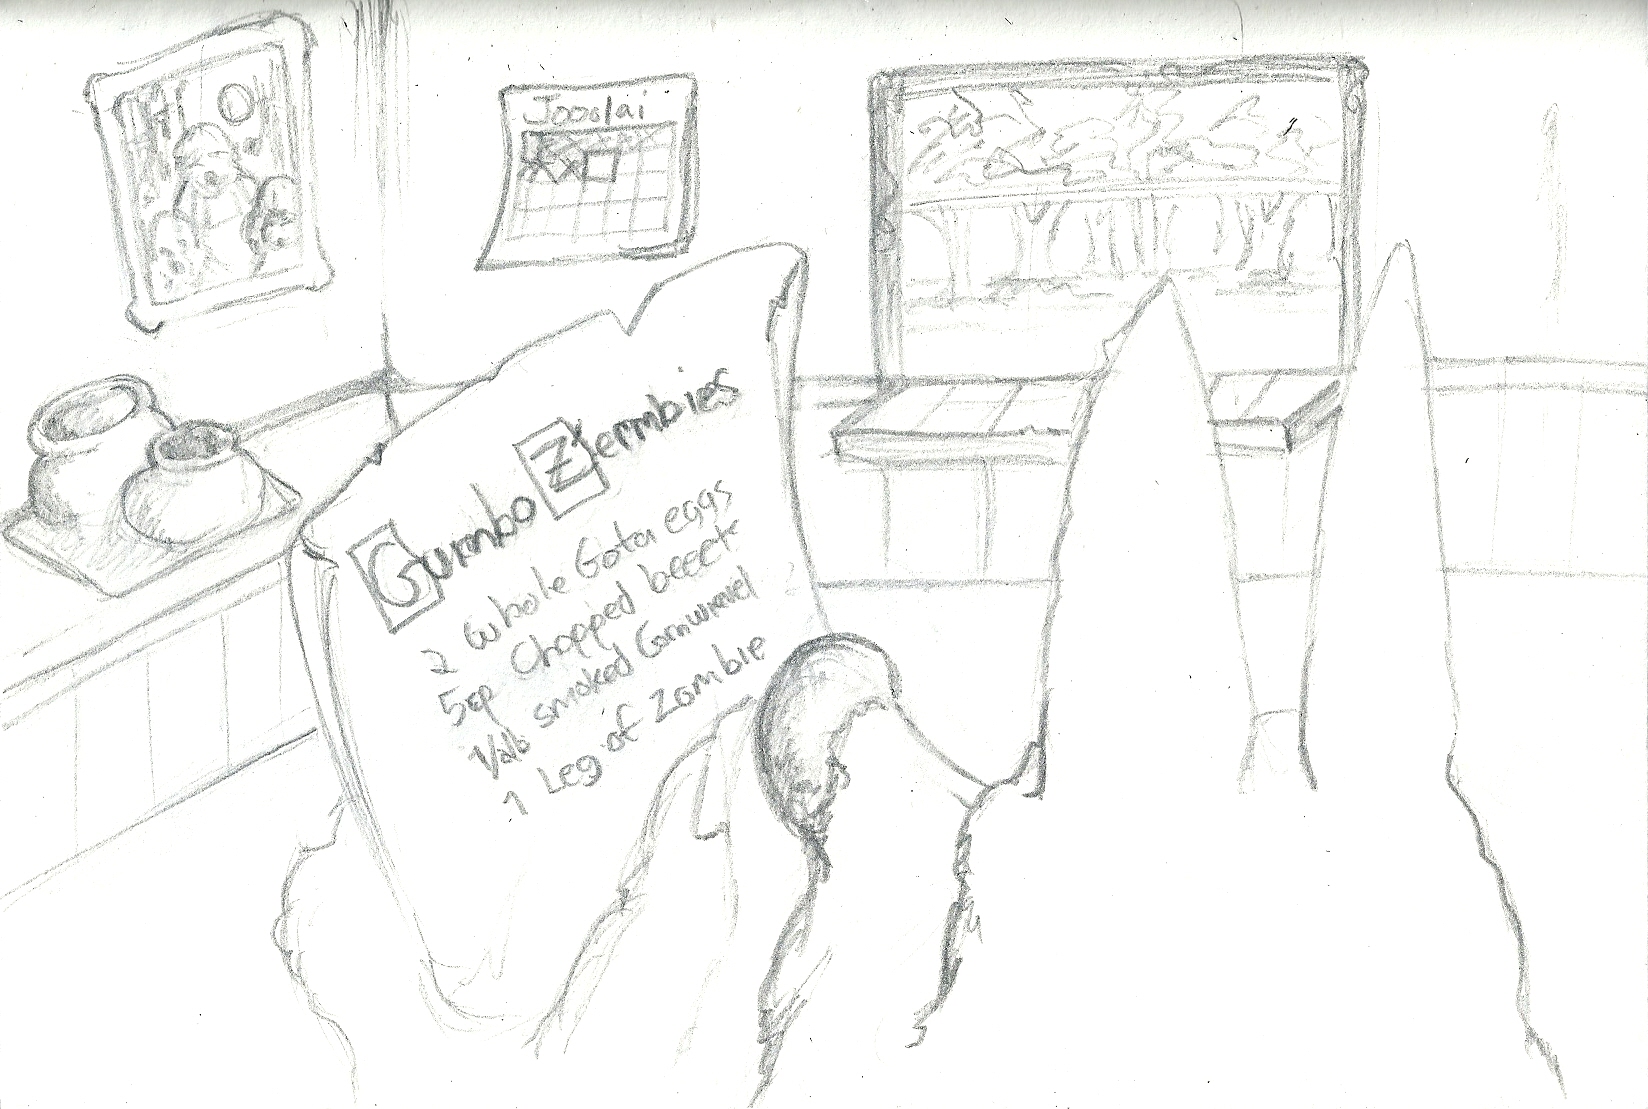 Jooolai
Gumbo Zermbies
2 whole Gotai eggs
5cp Chopped beeck
1/2lb smoked Gornwravel
1 Leg of zombie